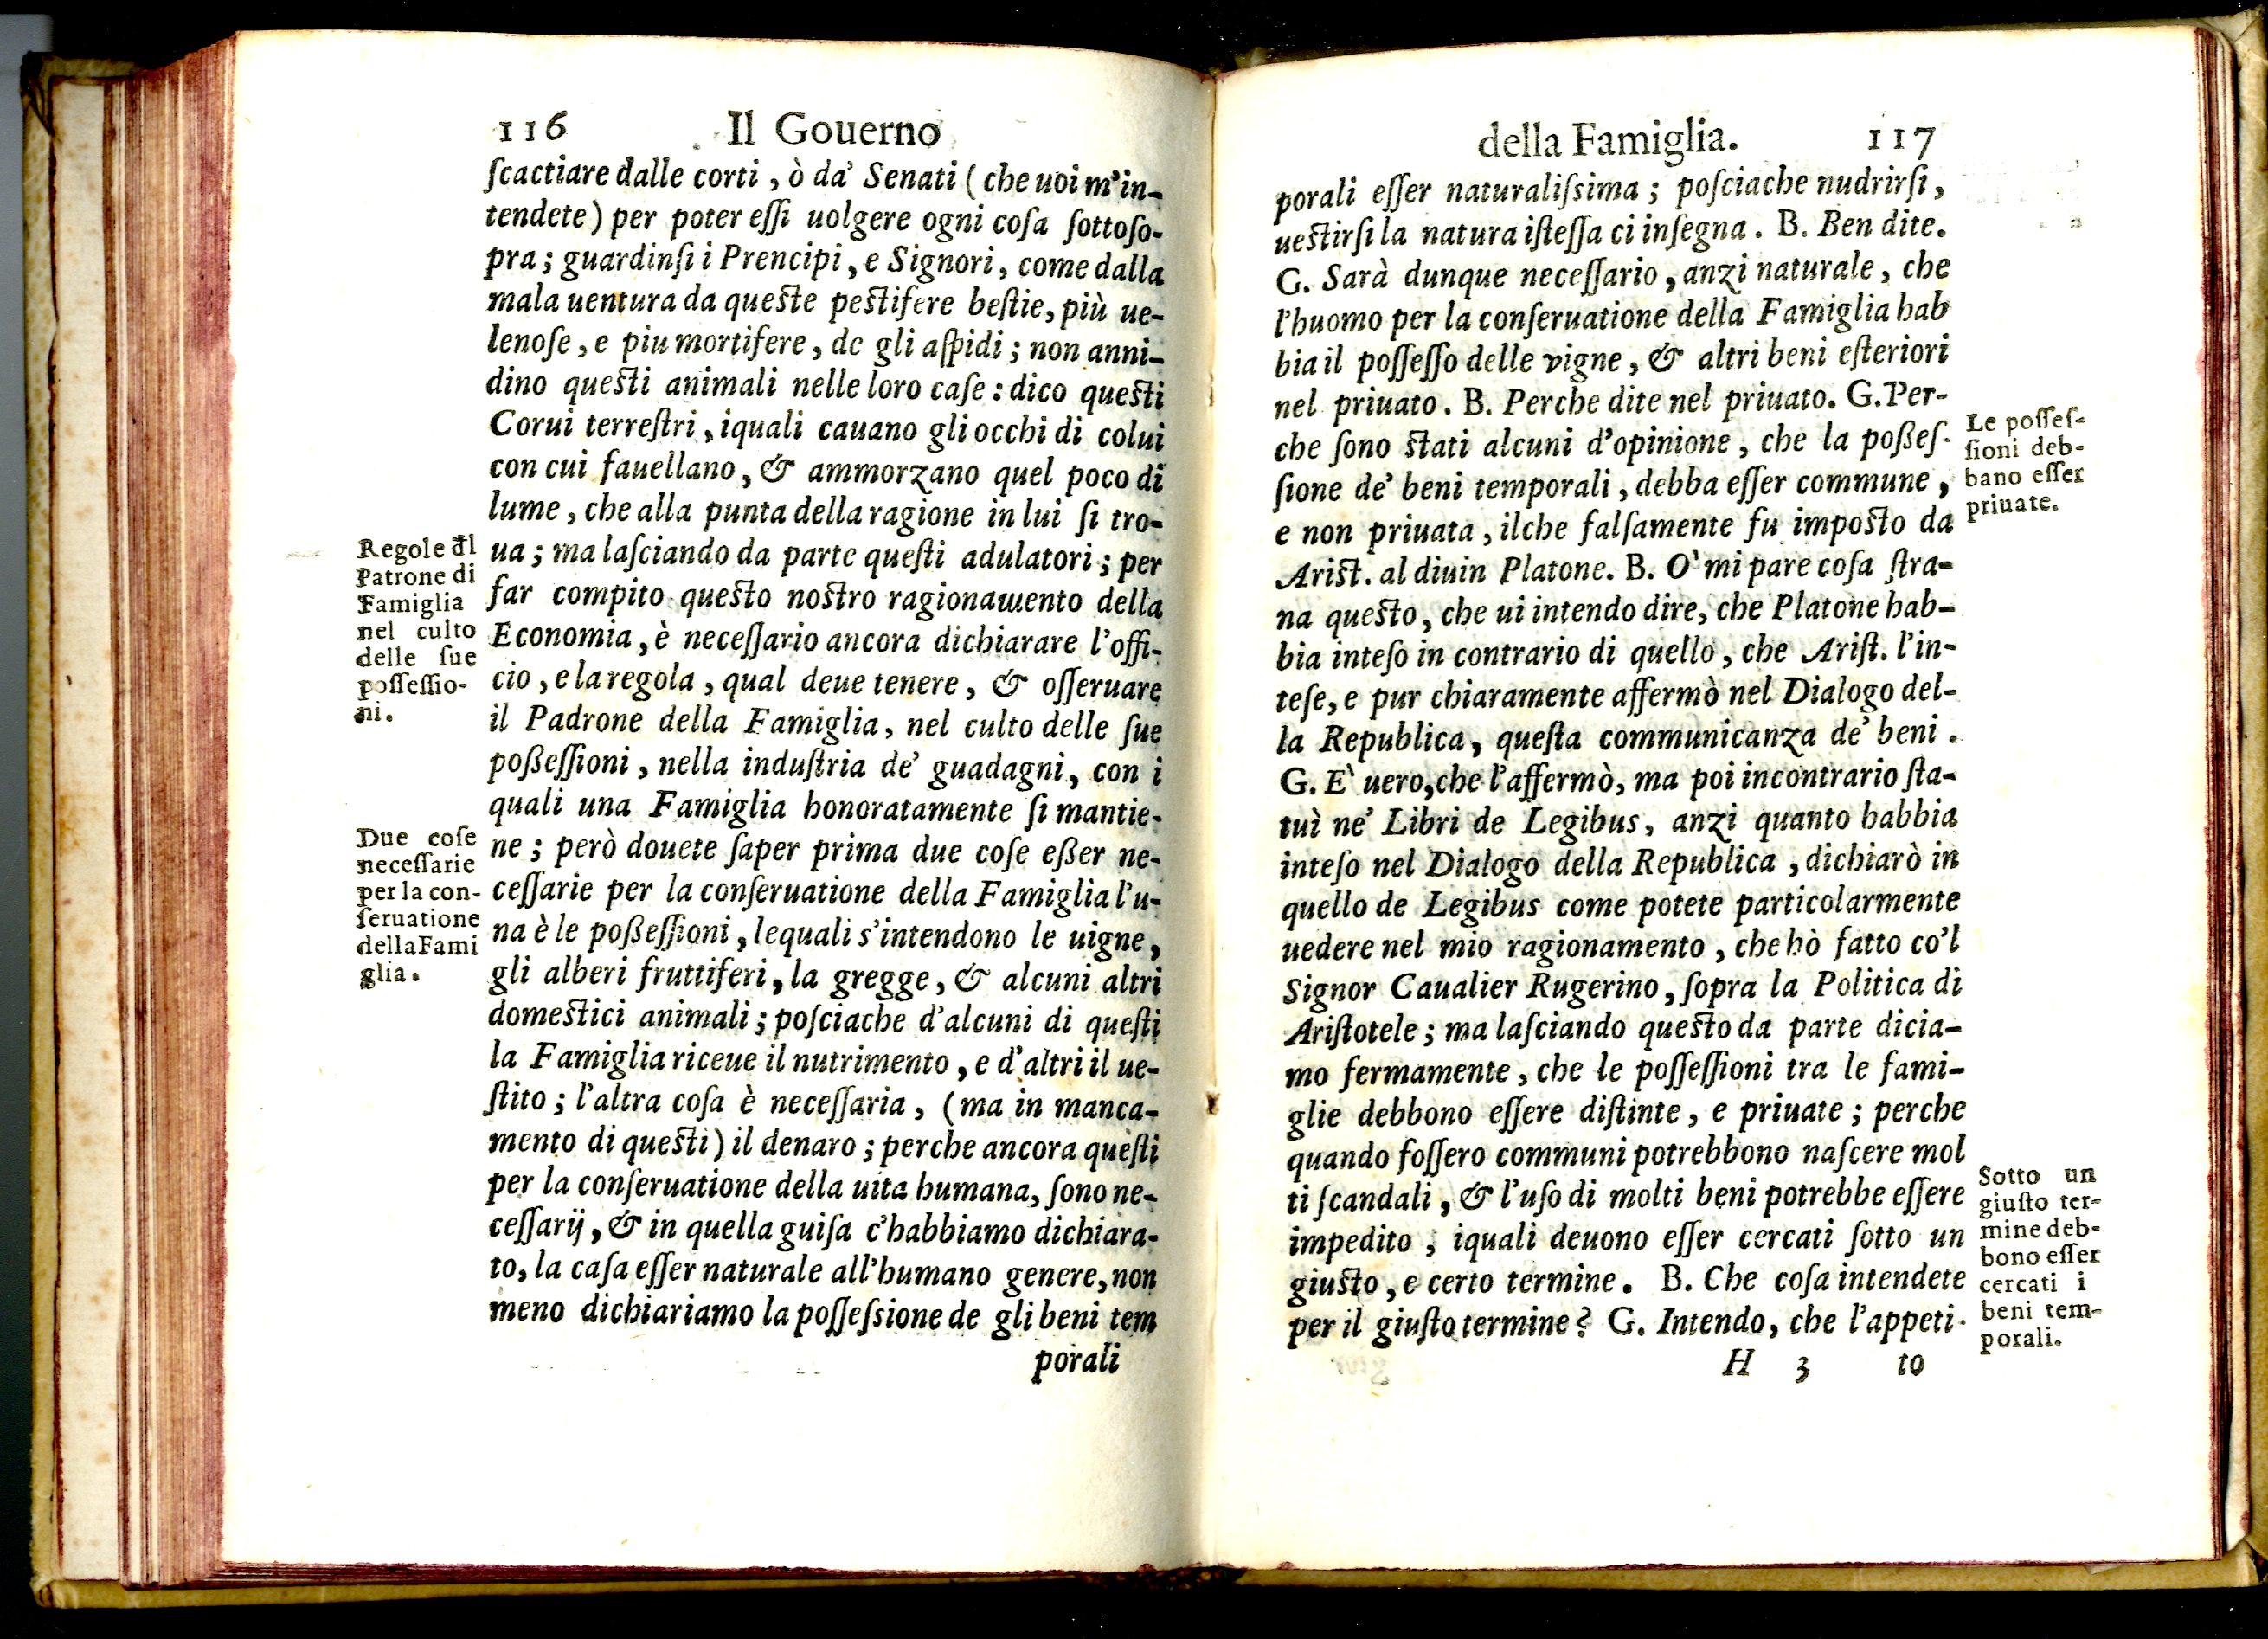 116 Il Gouerno
ſcactiare dalle corti, ò da' Senati (che uoi m'in-
tendete) per poter eſſi uolgere ogni coſa ſottoſo-
pra; guardinſi i Prencipi, e Signori, come dalla
mala uentura da queſte peſtifere beſtie, più ue-
lenoſe, e piu mortifere, de gli aſpidi; non anni-
dino queſti animali nelle loro caſe: dico queſti
Corui terreſtri, iquali cauano gli occhi di colui
con cui fauellano, & ammorzano quel poco di
lume, che alla punta della ragione in lui ſi tro-
ua; ma laſciando da parte queſti adulatori; per
far compito queſto noſtro ragionamento della
Economia, è neceſſario ancora dichiarare l'offi-
cio, e la regola, qual deue tenere, & oſſeruare
il Padrone della Famiglia, nel culto delle ſue
poßeſſioni, nella induſtria de' guadagni, con i
quali una Famiglia honoratamente ſi mantie-
ne; però douete ſaper prima due coſe eßer ne-
ceſſarie per la conſeruatione della Famiglia l'u-
na è le poßeſſioni, lequali s'intendono le uigne,
gli alberi fruttiferi, la gregge, & alcuni altri
domeſtici animali; poſciache d'alcuni di queſti
la Famiglia riceue il nutrimento, e d'altri il ue-
ſtito; l'altra coſa è neceſſaria, (ma in manca-
mento di queſti) il denaro; perche ancora queſti
per la conſeruatione della uita humana, ſono ne-
ceſſarij, & in quella guiſa c'habbiamo dichiara-
to, la caſa eſſer naturale all'humano genere, non
meno dichiariamo la poſſeſsione de gli beni tem
porali
Regole dl
Patrone di
Famiglia
nel culto
delle ſue
poſſeſſio-
ni.
Due coſe
neceſſarie
per la con-
ſeruatione
dellaFami
glia.
della Famiglia. 117
porali eſſer naturaliſsima; poſciache nudrirſi,
ueſtirſi la natura iſteſſa ci inſegna. B. Ben dite.
G. Sarà dunque neceſſario, anzi naturale, che
l'huomo per la conſeruatione della Famiglia hab
bia il poſſeſſo delle vigne, & altri beni eſteriori
nel priuato. B. Perche dite nel priuato. G. Per-
che ſono ſtati alcuni d'opinione, che la poßeſ-
ſione de' beni temporali, debba eſſer commune,
e non priuata, ilche falſamente fu impoſto da
Ariſt. al diuin Platone. B. O' mi pare coſa ſtra-
na queſto, che ui intendo dire, che Platone hab-
bia inteſo in contrario di quello, che Ariſt. l'in-
teſe, e pur chiaramente affermò nel Dialogo del-
la Republica, queſta communicanza de' beni.
G. E' uero, che l'affermò, ma poi incontrario ſta-
tuì ne' Libri de Legibus, anzi quanto habbia
inteſo nel Dialogo della Republica, dichiarò in
quello de Legibus come potete particolarmente
uedere nel mio ragionamento, che hò fatto co'l
Signor Caualier Rugerino, ſopra la Politica di
Ariſtotele; ma laſciando queſto da parte dicia-
mo fermamente, che le poſſeſſioni tra le fami-
glie debbono eſſere diſtinte, e priuate; perche
quando foſſero communi potrebbono naſcere mol
ti ſcandali, & l'uſo di molti beni potrebbe eſſere
impedito, iquali deuono eſſer cercati ſotto un
giuſto, e certo termine. B. Che coſa intendete
per il giuſto termine? G. Intendo, che l'appeti-
H 3 to
Le poſſeſ-
ſioni deb-
bano eſſer
priuate.
Sotto un
giuſto ter-
mine deb-
bono eſſer
cercati i
beni tem-
porali.